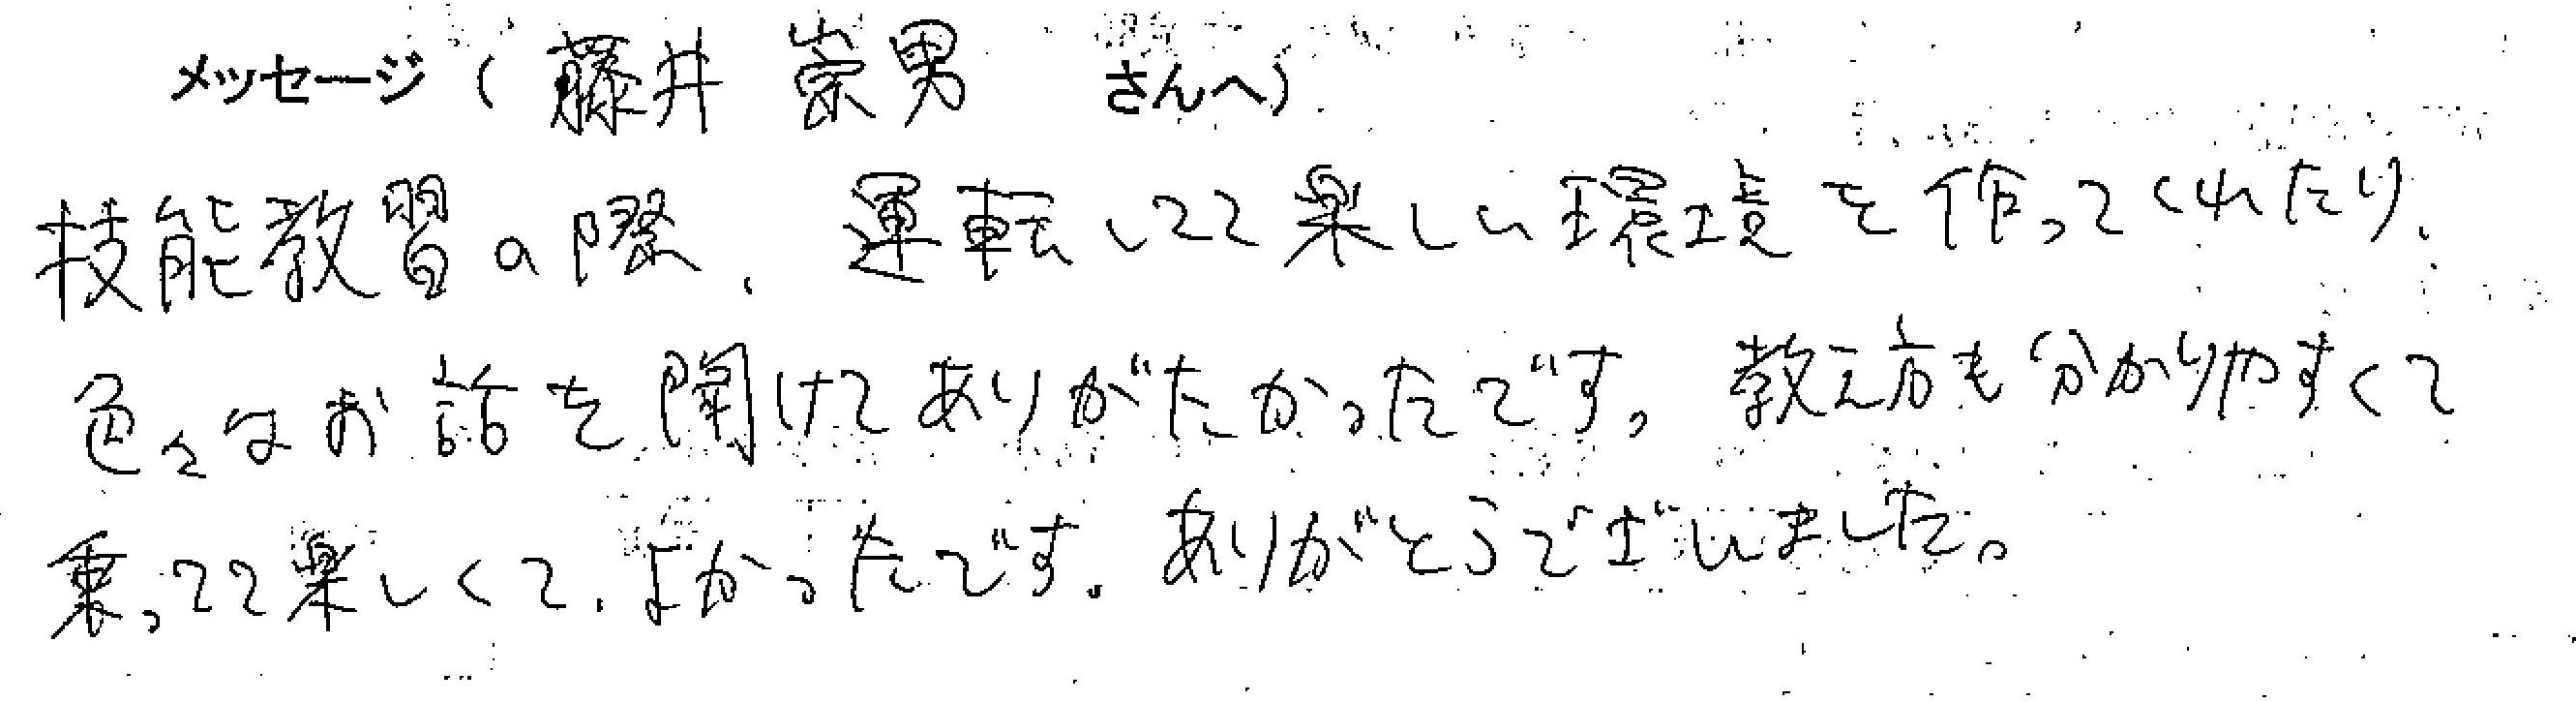 メッセージ(藤井 崇男 さんへ)
技能教習の際、運転してて楽しい環境を作ってくれたり、
色々なお話を聞けてありがたかったです。教え方も分かりやすくて
乗ってて楽しくて、よかったです。ありがとうございました。